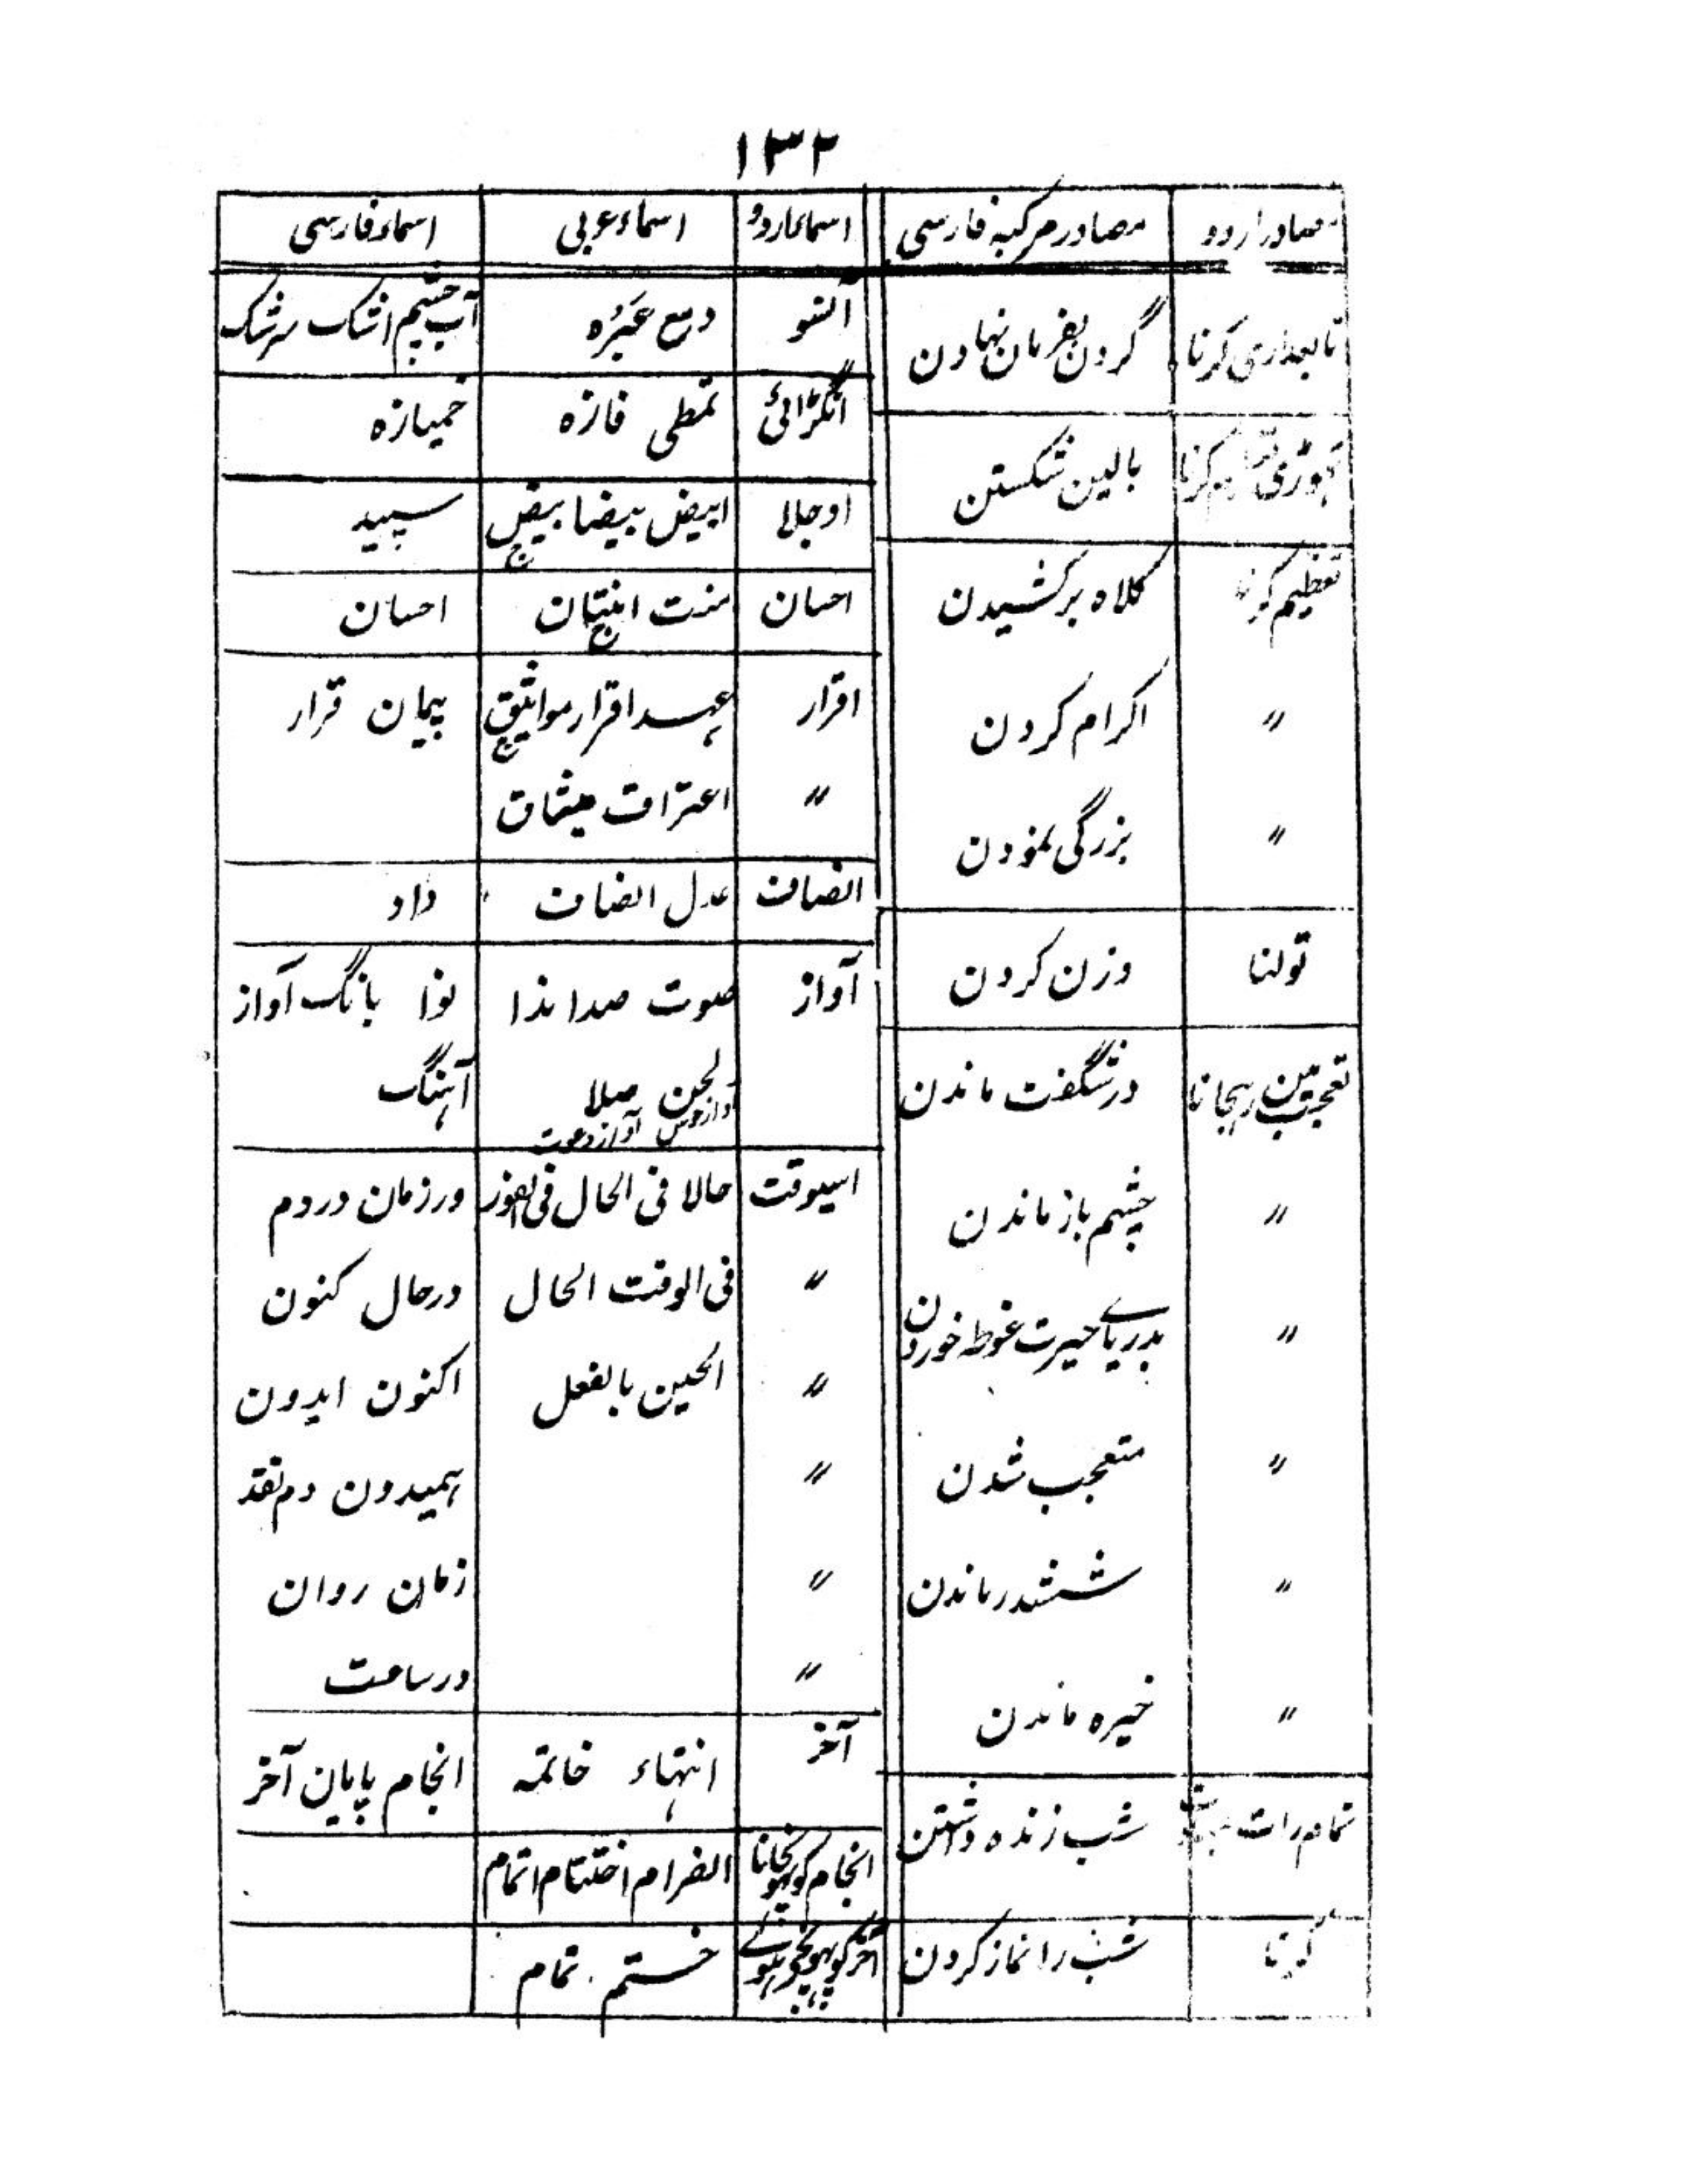 ۱۳۲
مصادر اردو	مصادر مرکبہ فارسی	اسماء اردو	اسماء عربی	اسماء فارسی
تابعداری کرنا	گردن بفرمان نہادن
بالین شکستن
تعظیم کرنا	کلاہ برکشیدن
〃	اکرام کردن
〃	بزرگی نمودن
تولنا	وزن کردن
تعجب میں رہجانا	در شگفت ماندن
〃	چشم باز ماندن
〃	بدریاے حیرت غوطہ خوردن
〃	متعجب شدن
〃	ششدر ماندن
〃	خیرہ ماندن
تمام رات	شب زندہ داشتن
کرنا	شب را نماز کردن
آنسو	دمع عَبْرَہ	آب چشم اشک سرشک
انگڑائی	تمطی فازہ	خمیازہ
اوجالا	ابیض بیضا بیض ج	سپید
احسان	منت امتنان	احسان
اقرار	عہد اقرار مواثیق ج	پیمان قرار
〃	اعتراف میثاق
انصاف	عدل انصاف	داد
آواز	صوت صدا ندا	نوا بانگ آواز
لحن صلا	آہنگ
آواز خوش آواز دعوت
اسیوقت	حالا فی الحال فی الفور	در زمان در دم
〃	فی الوقت الحال	در حال کنون
〃	الحین بالفعل	اکنون ایدون
〃	ہمیدون دم نقد
〃	زمان روان
〃	در ساعت
آخر	انتہاء خاتمہ	انجام پایان آخر
انجام کو پہونچانا	انصرام اختتام اتمام
ختم تمام